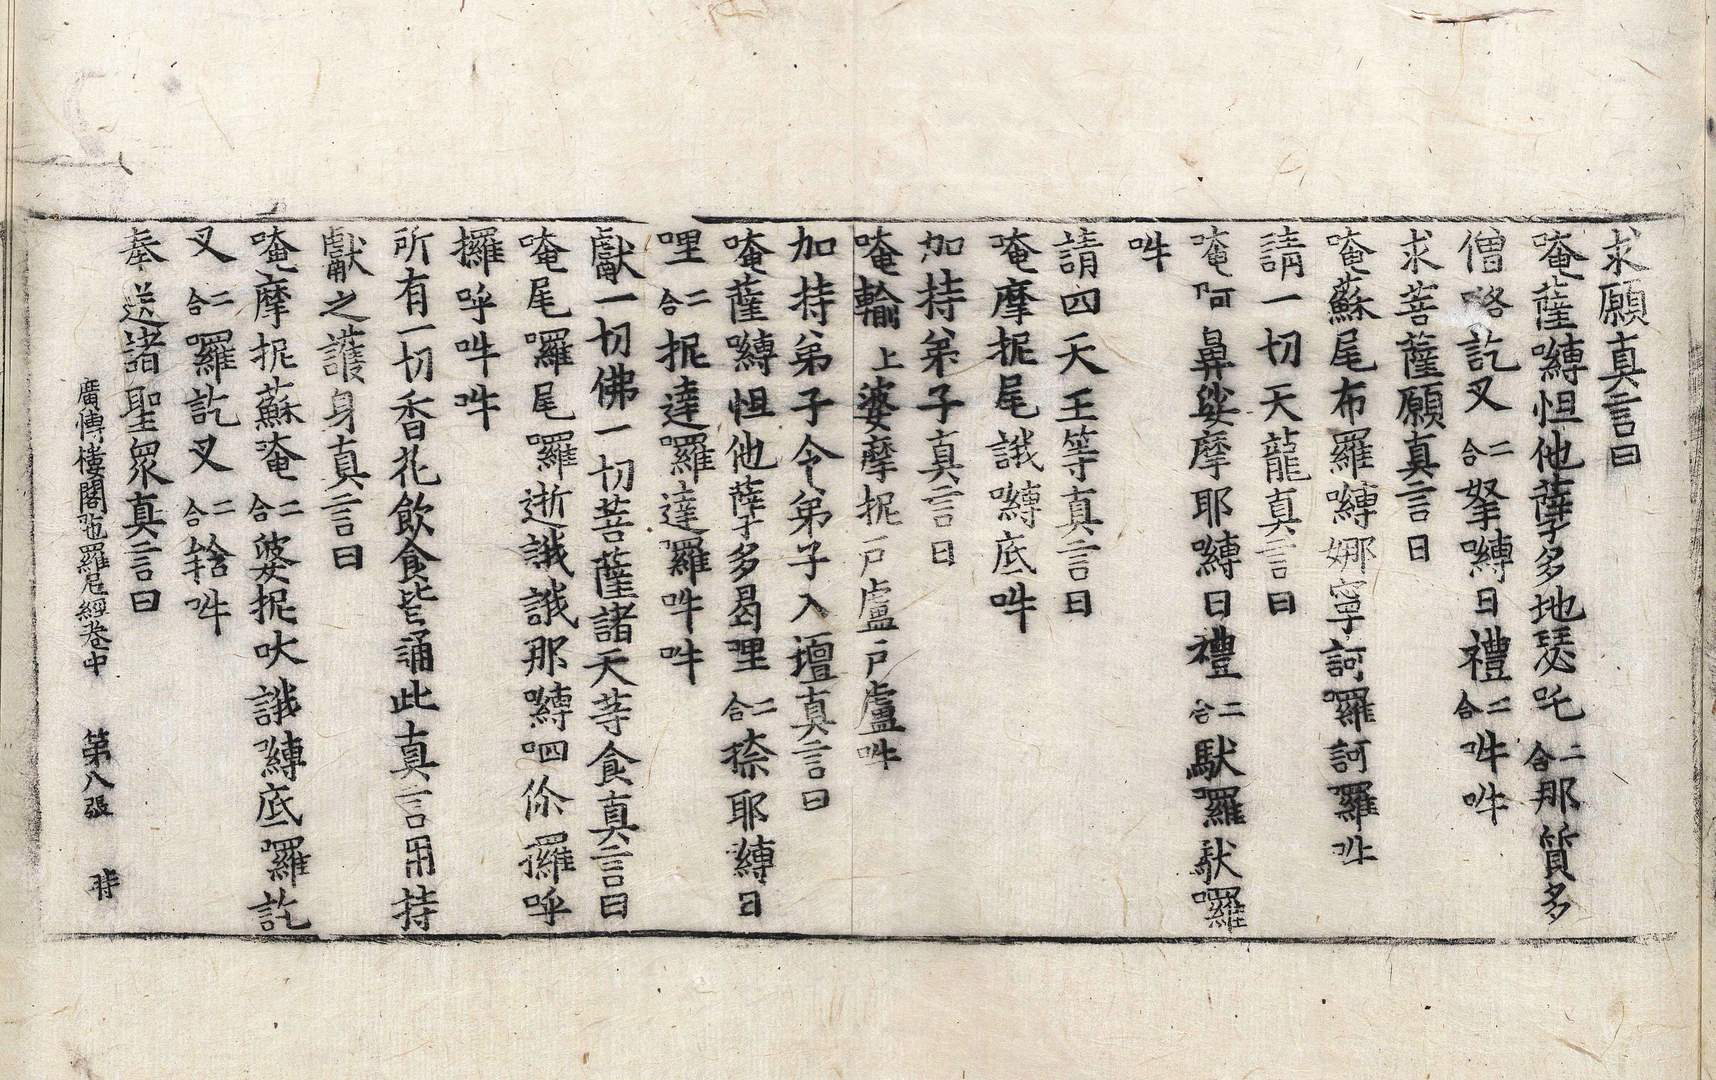 求願真言曰
唵薩嚩怛他孽多地瑟吒二合那質多
僧咯訖叉二合拏嚩日禮二合吽吽
求菩薩願真言曰
唵蘇尾布羅嚩娜寧訶囉訶囉吽
請一切天龍真言曰
唵阿鼻娑摩耶嚩日禮二合馱囉馱囉
吽
請四天王等真言曰
唵摩抳尾誐嚩底吽
加持弟子真言曰
唵輸上婆摩抳戶盧戶盧吽
加持弟子令弟子入壇真言曰
唵薩嚩怛他孽多曷哩二合捺耶嚩日
哩二合抳達囉達囉吽吽
獻一切佛一切菩薩諸天等食真言曰
唵尾囉尾囉逝誐誐那嚩呬伱攞呼
攞呼吽吽
所有一切香花飲食皆誦此真言用持
獻之護身真言曰
唵摩抳蘇唵二合婆抳吠誐嚩底囉訖
叉二合囉訖叉二合𤚥吽
奉送諸聖眾真言曰
廣博樓閣陁羅尼經卷中　第八張　時